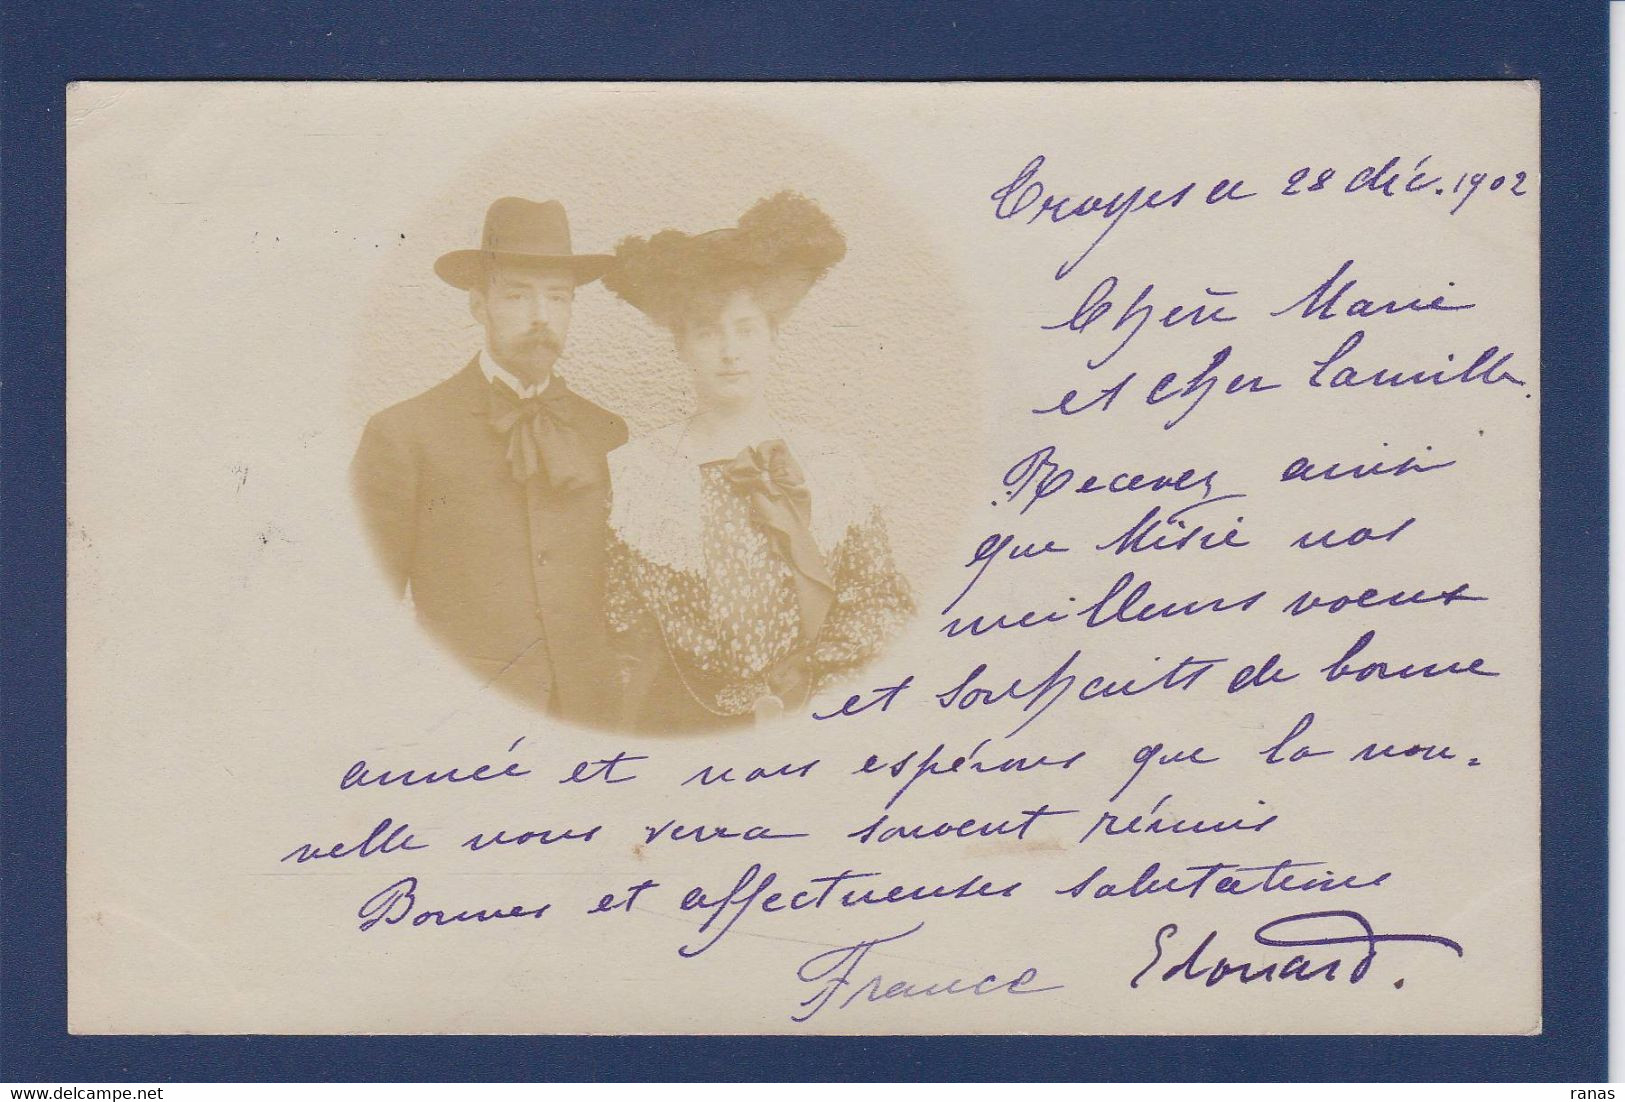 Troyes le 28 déc. 1902
Chère Marie
et cher Camille.
Recevez ainsi
que Misie nos
meilleurs voeux
et souhaits de bonne
année et nous espérons que la nou-
velle nous verra souvent réunis
Bonnes et affectueuses salutations
France Edouard.
ranas